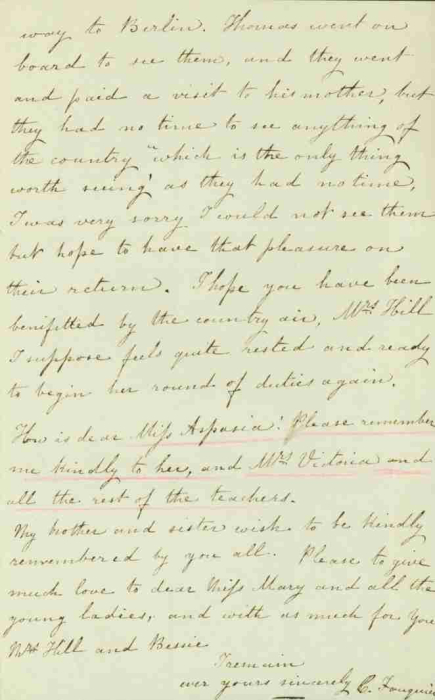 way to Berlin. Thomas went on
board to see them, and they went
and paid a visit to his mother, but
they had no time to see anything of
the country "which is the only thing
worth seeing" as they had no time,
I was very sorry I could not see them
but hope to have that pleasure on
their return. I hope you have been
benifitted by the country air, Mrs Hill
I suppose feels quite rested and ready
to begin her round of duties again.
How is dear Miss Aspasia? Please remember
me kindly to her, and Mrs Victoria and
all the rest of the teachers.
My brother and sister wish to be kindly
remembered by you all. Please to give
much love to dear Miss Mary and all the
young ladies, and with as much for you
Mrs Hill and Bessie
I remain
ever yours sincerely C.